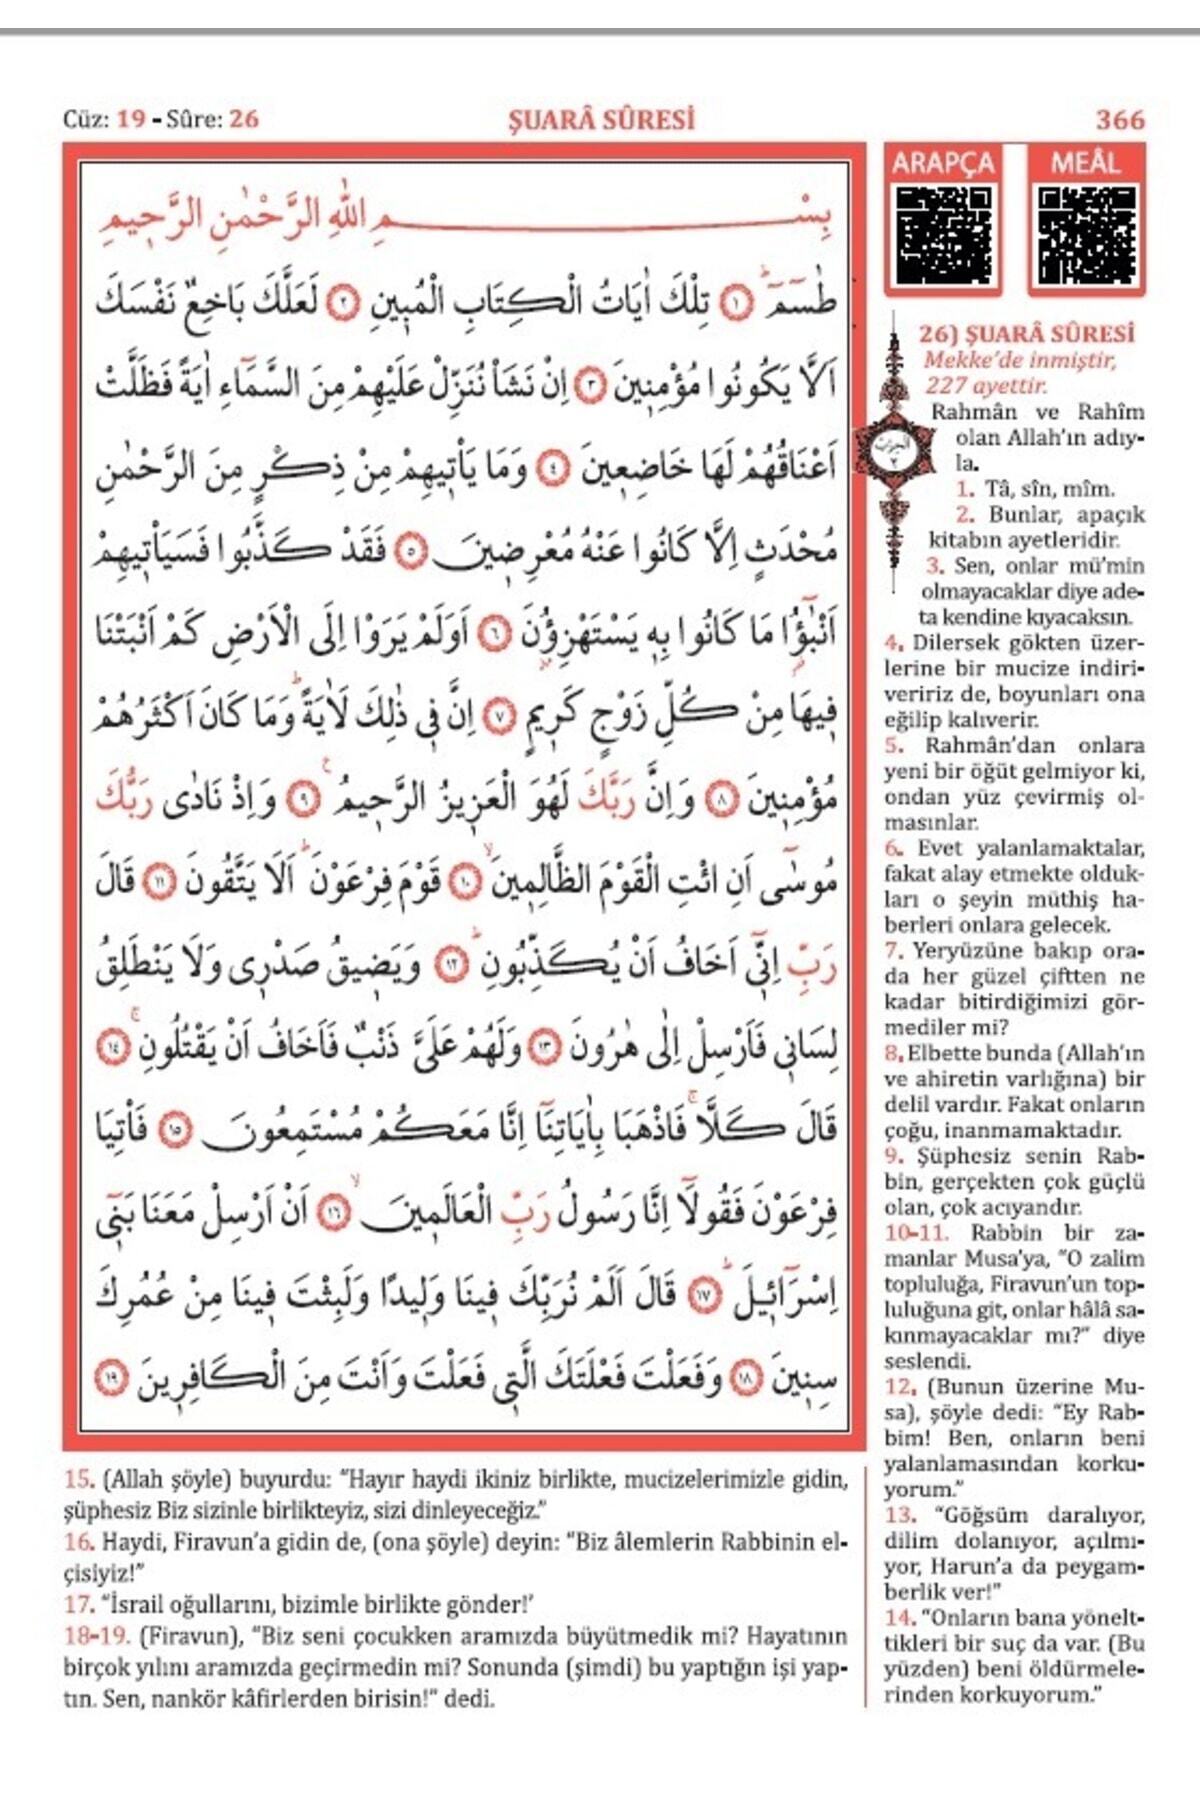 Cüz: 19 - Sûre: 26
ŞUARÂ SÛRESİ
366
بِسْمِ اللّٰهِ الرَّحْمٰنِ الرَّح۪يمِ
طٰسٓمٓۜ ﴿١﴾ تِلْكَ اٰيَاتُ الْكِتَابِ الْمُب۪ينِ ﴿٢﴾ لَعَلَّكَ بَاخِعٌ نَفْسَكَ
اَلَّا يَكُونُوا مُؤْمِن۪ينَ ﴿٣﴾ اِنْ نَشَأْ نُنَزِّلْ عَلَيْهِمْ مِنَ السَّمَٓاءِ اٰيَةً فَظَلَّتْ
اَعْنَاقُهُمْ لَهَا خَاضِع۪ينَ ﴿٤﴾ وَمَا يَأْت۪يهِمْ مِنْ ذِكْرٍ مِنَ الرَّحْمٰنِ
مُحْدَثٍ اِلَّا كَانُوا عَنْهُ مُعْرِض۪ينَ ﴿٥﴾ فَقَدْ كَذَّبُوا فَسَيَأْت۪يهِمْ
اَنْبٰٓؤُ۬ا مَا كَانُوا بِه۪ يَسْتَهْزِؤُ۫نَ ﴿٦﴾ اَوَلَمْ يَرَوْا اِلَى الْاَرْضِ كَمْ اَنْبَتْنَا
ف۪يهَا مِنْ كُلِّ زَوْجٍ كَر۪يمٍ ﴿٧﴾ اِنَّ ف۪ي ذٰلِكَ لَاٰيَةًۜ وَمَا كَانَ اَكْثَرُهُمْ
مُؤْمِن۪ينَ ﴿٨﴾ وَاِنَّ رَبَّكَ لَهُوَ الْعَز۪يزُ الرَّح۪يمُ۟ ﴿٩﴾ وَاِذْ نَادٰى رَبُّكَ
مُوسٰٓى اَنِ ائْتِ الْقَوْمَ الظَّالِم۪ينَۙ ﴿١٠﴾ قَوْمَ فِرْعَوْنَۜ اَلَا يَتَّقُونَ ﴿١١﴾ قَالَ
رَبِّ اِنّ۪ٓي اَخَافُ اَنْ يُكَذِّبُونِۜ ﴿١٢﴾ وَيَض۪يقُ صَدْر۪ي وَلَا يَنْطَلِقُ
لِسَان۪ي فَاَرْسِلْ اِلٰى هٰرُونَ ﴿١٣﴾ وَلَهُمْ عَلَيَّ ذَنْبٌ فَاَخَافُ اَنْ يَقْتُلُونِۚ ﴿١٤﴾
قَالَ كَلَّاۚ فَاذْهَبَا بِاٰيَاتِنَٓا اِنَّا مَعَكُمْ مُسْتَمِعُونَ ﴿١٥﴾ فَأْتِيَا
فِرْعَوْنَ فَقُولَٓا اِنَّا رَسُولُ رَبِّ الْعَالَم۪ينَۙ ﴿١٦﴾ اَنْ اَرْسِلْ مَعَنَا بَن۪ٓي
اِسْرَٓائ۪لَۜ ﴿١٧﴾ قَالَ اَلَمْ نُرَبِّكَ ف۪ينَا وَل۪يدًا وَلَبِثْتَ ف۪ينَا مِنْ عُمُرِكَ
سِن۪ينَ ﴿١٨﴾ وَفَعَلْتَ فَعْلَتَكَ الَّت۪ي فَعَلْتَ وَاَنْتَ مِنَ الْكَافِر۪ينَ ﴿١٩﴾
ARAPÇA
MEÂL
26) ŞUARÂ SÛRESİ
Mekke'de inmiştir,
227 ayettir.
Rahmân ve Rahîm
olan Allah'ın adıy-
la.
1. Tâ, sîn, mîm.
2. Bunlar, apaçık
kitabın ayetleridir.
3. Sen, onlar mü'min
olmayacaklar diye ade-
ta kendine kıyacaksın.
4. Dilersek gökten üzer-
lerine bir mucize indiri-
veririz de, boyunları ona
eğilip kalıverir.
5. Rahmân'dan onlara
yeni bir öğüt gelmiyor ki,
ondan yüz çevirmiş ol-
masınlar.
6. Evet yalanlamaktalar,
fakat alay etmekte olduk-
ları o şeyin müthiş ha-
berleri onlara gelecek.
7. Yeryüzüne bakıp ora-
da her güzel çiftten ne
kadar bitirdiğimizi gör-
mediler mi?
8. Elbette bunda (Allah'ın
ve ahiretin varlığına) bir
delil vardır. Fakat onların
çoğu, inanmamaktadır.
9. Şüphesiz senin Rab-
bin, gerçekten çok güçlü
olan, çok acıyandır.
10-11. Rabbin bir za-
manlar Musa'ya, "O zalim
topluluğa, Firavun'un top-
luluğuna git, onlar hâlâ sa-
kınmayacaklar mı?" diye
seslendi.
12. (Bunun üzerine Mu-
sa), şöyle dedi: "Ey Rab-
bim! Ben, onların beni
yalanlamasından korku-
yorum."
13. "Göğsüm daralıyor,
dilim dolanıyor, açılmı-
yor, Harun'a da peygam-
berlik ver!"
14. "Onların bana yönelt-
tikleri bir suç da var. (Bu
yüzden) beni öldürmele-
rinden korkuyorum."
15. (Allah şöyle) buyurdu: "Hayır haydi ikiniz birlikte, mucizelerimizle gidin,
şüphesiz Biz sizinle birlikteyiz, sizi dinleyeceğiz."
16. Haydi, Firavun'a gidin de, (ona şöyle) deyin: "Biz âlemlerin Rabbinin el-
çisiyiz!"
17. "İsrail oğullarını, bizimle birlikte gönder!'
18-19. (Firavun), "Biz seni çocukken aramızda büyütmedik mi? Hayatının
birçok yılını aramızda geçirmedin mi? Sonunda (şimdi) bu yaptığın işi yap-
tın. Sen, nankör kâfirlerden birisin!" dedi.